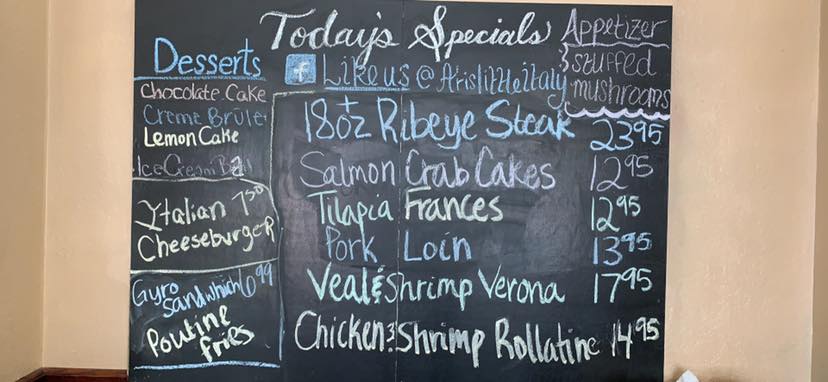 Today's Specials
Like us @ Arislittleitaly
Appetizer
stuffed
mushrooms
Desserts
Chocolate Cake
Creme Brule
Lemon Cake
Ice Cream
Italian 7.50
Cheeseburger
Gyro
Sandwhich 6.99
Poutine
fries
18oz Ribeye Steak 23.95
Salmon Crab Cakes 12.95
Tilapia Frances 12.95
Pork Loin 13.95
Veal & Shrimp Verona 17.95
Chicken & Shrimp Rollatine 14.95